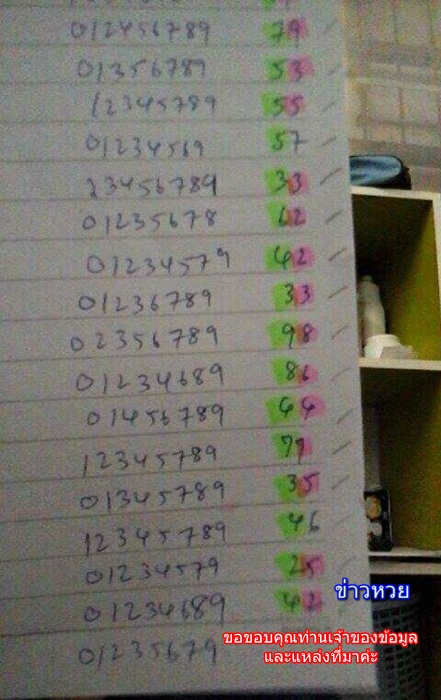 012456789 79
01356789 53
12345789 55
01234569 57
23456789 33
01235678 62
01234579 42
01236789 33
02356789 98
01234689 86
01456789 44
12345789 77
01345789 35
12345789 46
01234579 25
01234689 42
01235679
ข่าวหวย
ขอขอบคุณท่านเจ้าของข้อมูล
และแหล่งที่มาค่ะ